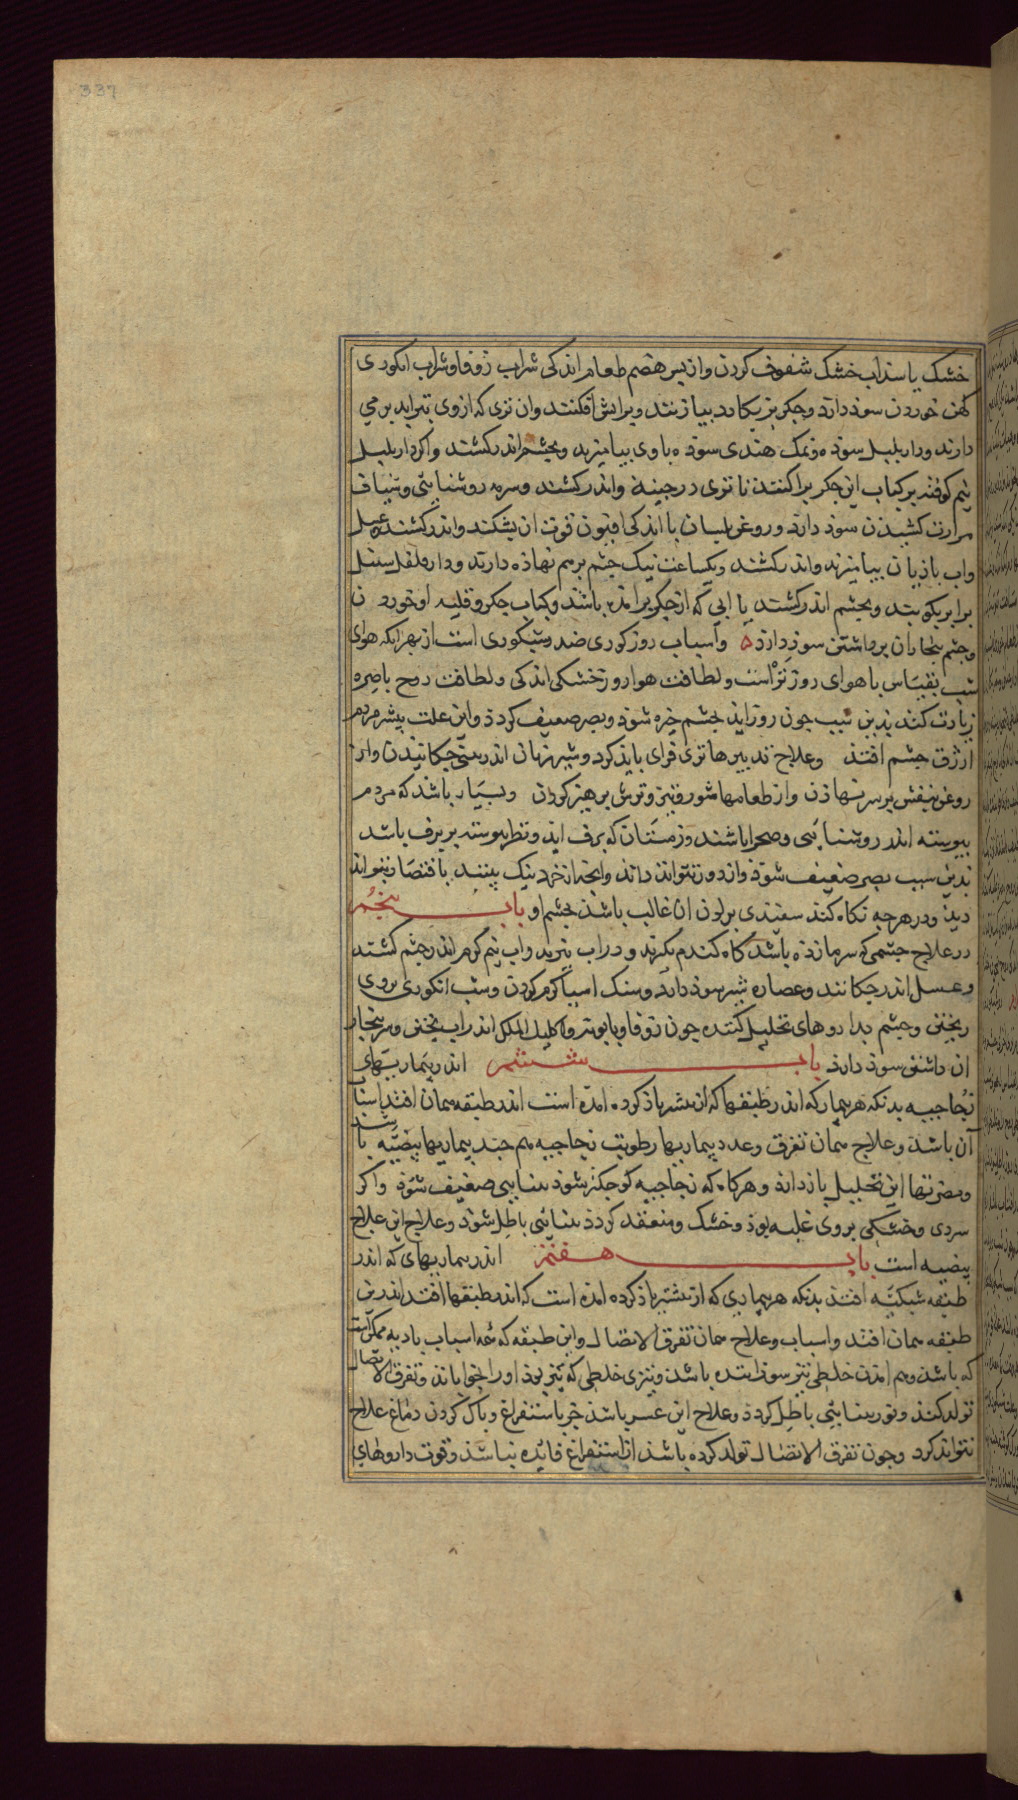 337
خشک یا سداب خشک سفوف کردن و از پس هضم طعام اندکی شراب زوفا و شراب انکوری
کهن خوردن سوذ دارد و جکر بز بکارد بیازنند و بر اتش افکنند و ان تری که از وی بتراید بر می
دارند و دار بلبل سوذه و نمک هندی سوذه با وی بیامیزند و بجشم اندر کشند و اکر دار بلبل
نیم کوفته بر کباب این جکر براکنند تا تری درجیند و اندر کشند و سرمه روشنایی و شیاف
مرارت کشیدن سوذ دارد و روغن بلسان با اندکی افیون قوت ان بشکند و اندر کشند و عسل
و اب باذیان بیامیزند و اندر کشند و یکساعت نیک جشم بر هم نهاذه دارند و دار فلفل سنبل
برابر بکوبند و بجشم اندر کشند با ابی که از جکر بز امده باشد و کباب جکر و قلیه او خوردن
و جشم بخار ان بر داشتن سوذ دارد و اسباب روز کوری ضد شبکوری است از بهر انکه هوای
شب بقیاس با هوای روز تر است و لطافت هوا روز خشکی اندکی و لطافت روح باصره
زیادت کند بدین سبب جون روز اید جشم خیره شوذ و بصر ضعیف کردد و این علت بیشتر مردم
ازرق جشم افتد و علاج تدبیرها تری فزای باید کرد و شیر زنان اندر بینی جکانیدن و از
روغن بنفش بر سر نهاذن و از طعامها شور و تیز و ترش برهیز کردن و بسیار باشد که مردم
بیوسته اندر روشنایی و صحرا باشند و زمستان که برف اید و نظر بیوسته بر برف باشد
بدین سبب بصر ضعیف شوذ و از دور نتواند دید و انجه از نزدیک بیند باقتصا نتواند
دید و در هرجه نکاه کند سفیدی بر لون ان غالب باشد بجشم او باب بنجم
در علاج جشمی که سرما زده باشد کاه کندم بکیرند و در اب بزند و اب نیم کرم اندر جشم کشند
و عسل اندر جکانند و عصاره شبر سوذ دارد و سنک اسیا کرم کردن و شراب انکوری بر وی
ریختن و جشم بدا روهای تحلیل کننده جون زوفا و بابونه و اکلیل الملک اندر اب بختن و سر ببخار
ان داشتن سوذ دارد باب ششم اندر بیماریهای
زجاجیه بدانکه هر بیماری که اندر طبقها که از بیشتر یاذ کرده امده است اندر طبقه همان افتد اسباب
آن باشد و علاج همان تفرق و عدد بیماریها رطوبت زجاجیه هم جند بیماریها بیضیه باشد
و مضرتها این تحلیل باز داند و هرکاه که زجاجیه کوجکتر شوذ بینایی ضعیف شوذ و اکر
سردی و خشکی بر وی غلبه بوذ و خشک و منعقد کردد بینائی باطل شوذ و علاج این علاج
بیضیه است باب هفتم اندر بیماریهای که اندر
طبقه شبکیه افتد بدانکه هر بیماری که از بیشتر یاذ کرده امده است که اندر طبقها افتد اندرین
طبقه همان افتد و اسباب و علاج همان تفرق الاتصال و این طبقه که همه اسباب یاد به ممکن است
که باشد و هم امدن خلطی تیز سوزانیده باشد و تیزی خلطی که تیز بوذ او را و تفرق الاتصال
تولد کند و نور بینایی باطل کردد و علاج این عسر باشد جز باستفراغ و باک کردن دماغ علاج
نتواند کرد و جون تفرق الاتصال تولد کرده باشد از استفراغ فائده نباشد و قوت داروهای